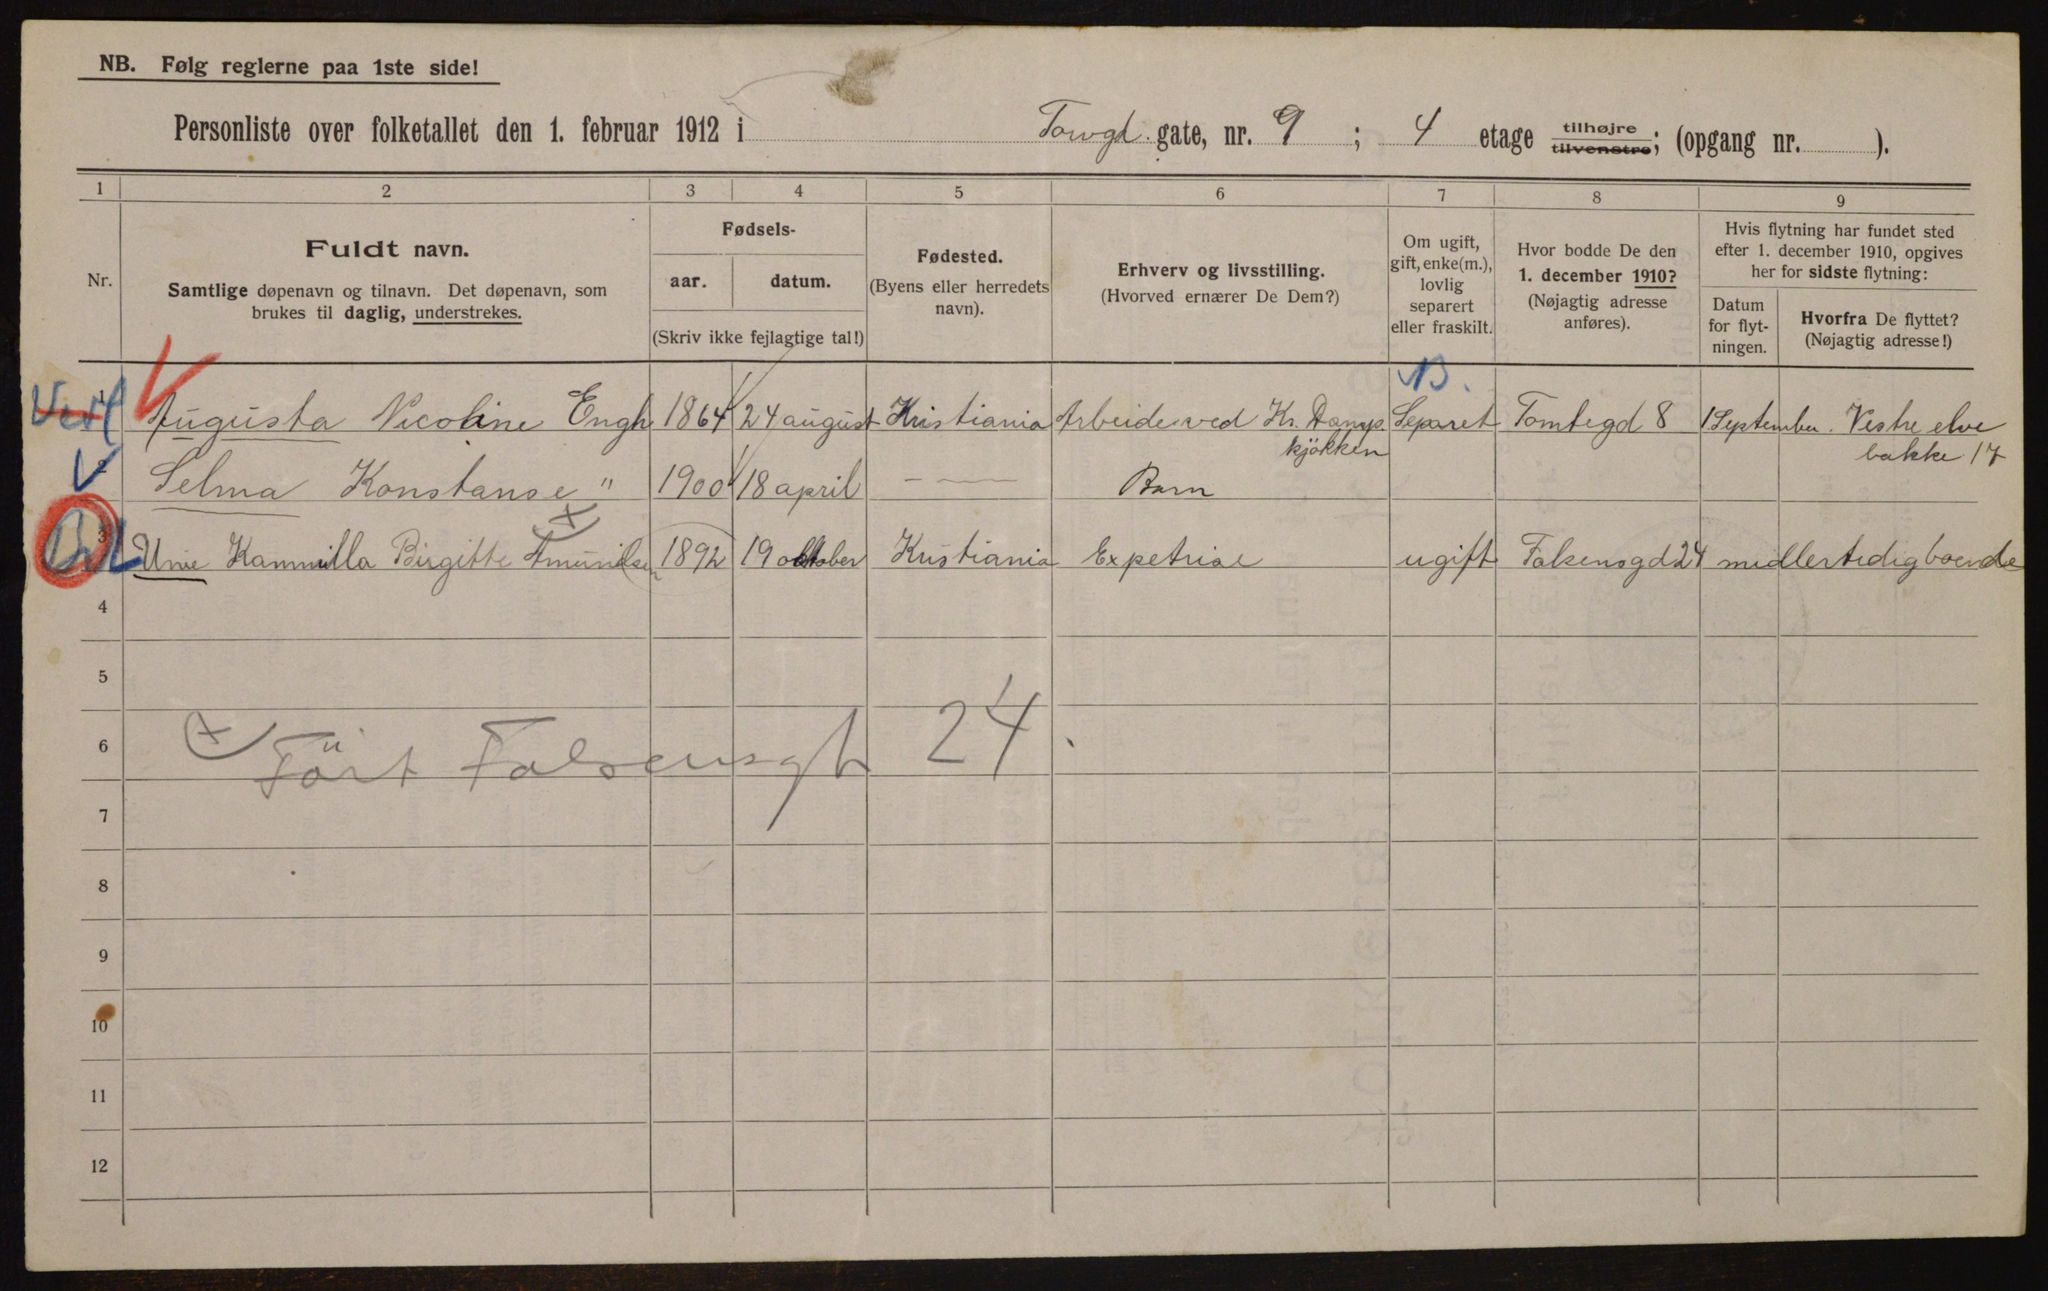 NB. Følg reglerne paa 1ste side!
Personliste over folketallet den 1. februar 1912 i gate, nr. 9 ; 4 etage tilhøjre tilvenstre; (opgang nr. ).
1 2 3 4 5 6 7 8 9
Nr.
Fuldt navn.
Samtlige døpenavn og tilnavn. Det døpenavn, som
brukes til daglig, understrekes.
Fødsels-
aar. datum.
(Skriv ikke fejlagtige tal!)
Fødested.
(Byens eller herredets
navn).
Erhverv og livsstilling.
(Hvorved ernærer De Dem?)
Om ugift,
gift, enke(m.),
lovlig
separert
eller fraskilt.
Hvor bodde De den
1. december 1910?
(Nøjagtig adresse
anføres).
Hvis flytning har fundet sted
efter 1. december 1910, opgives
her for sidste flytning:
Datum
for flyt-
ningen.
Hvorfra De flyttet?
(Nøjagtig adresse!)
1 Augusta Nicoline Engh 1864 24 august Kristiania Arbeider ved Kr. Damp. Separet Tomtegd 8 1 September. Vestre elve
kjökken bakke 17
2 Selma Konstanse " 1900 18 april — — Barn
3 Kammilla Birgitte Amundsen 1892 19 oktober Kristiania Expetrise ugift Falsensgd 24 midlertidig boende
4
5
6 Fört Falsensgt 24.
7
8
9
10
11
12